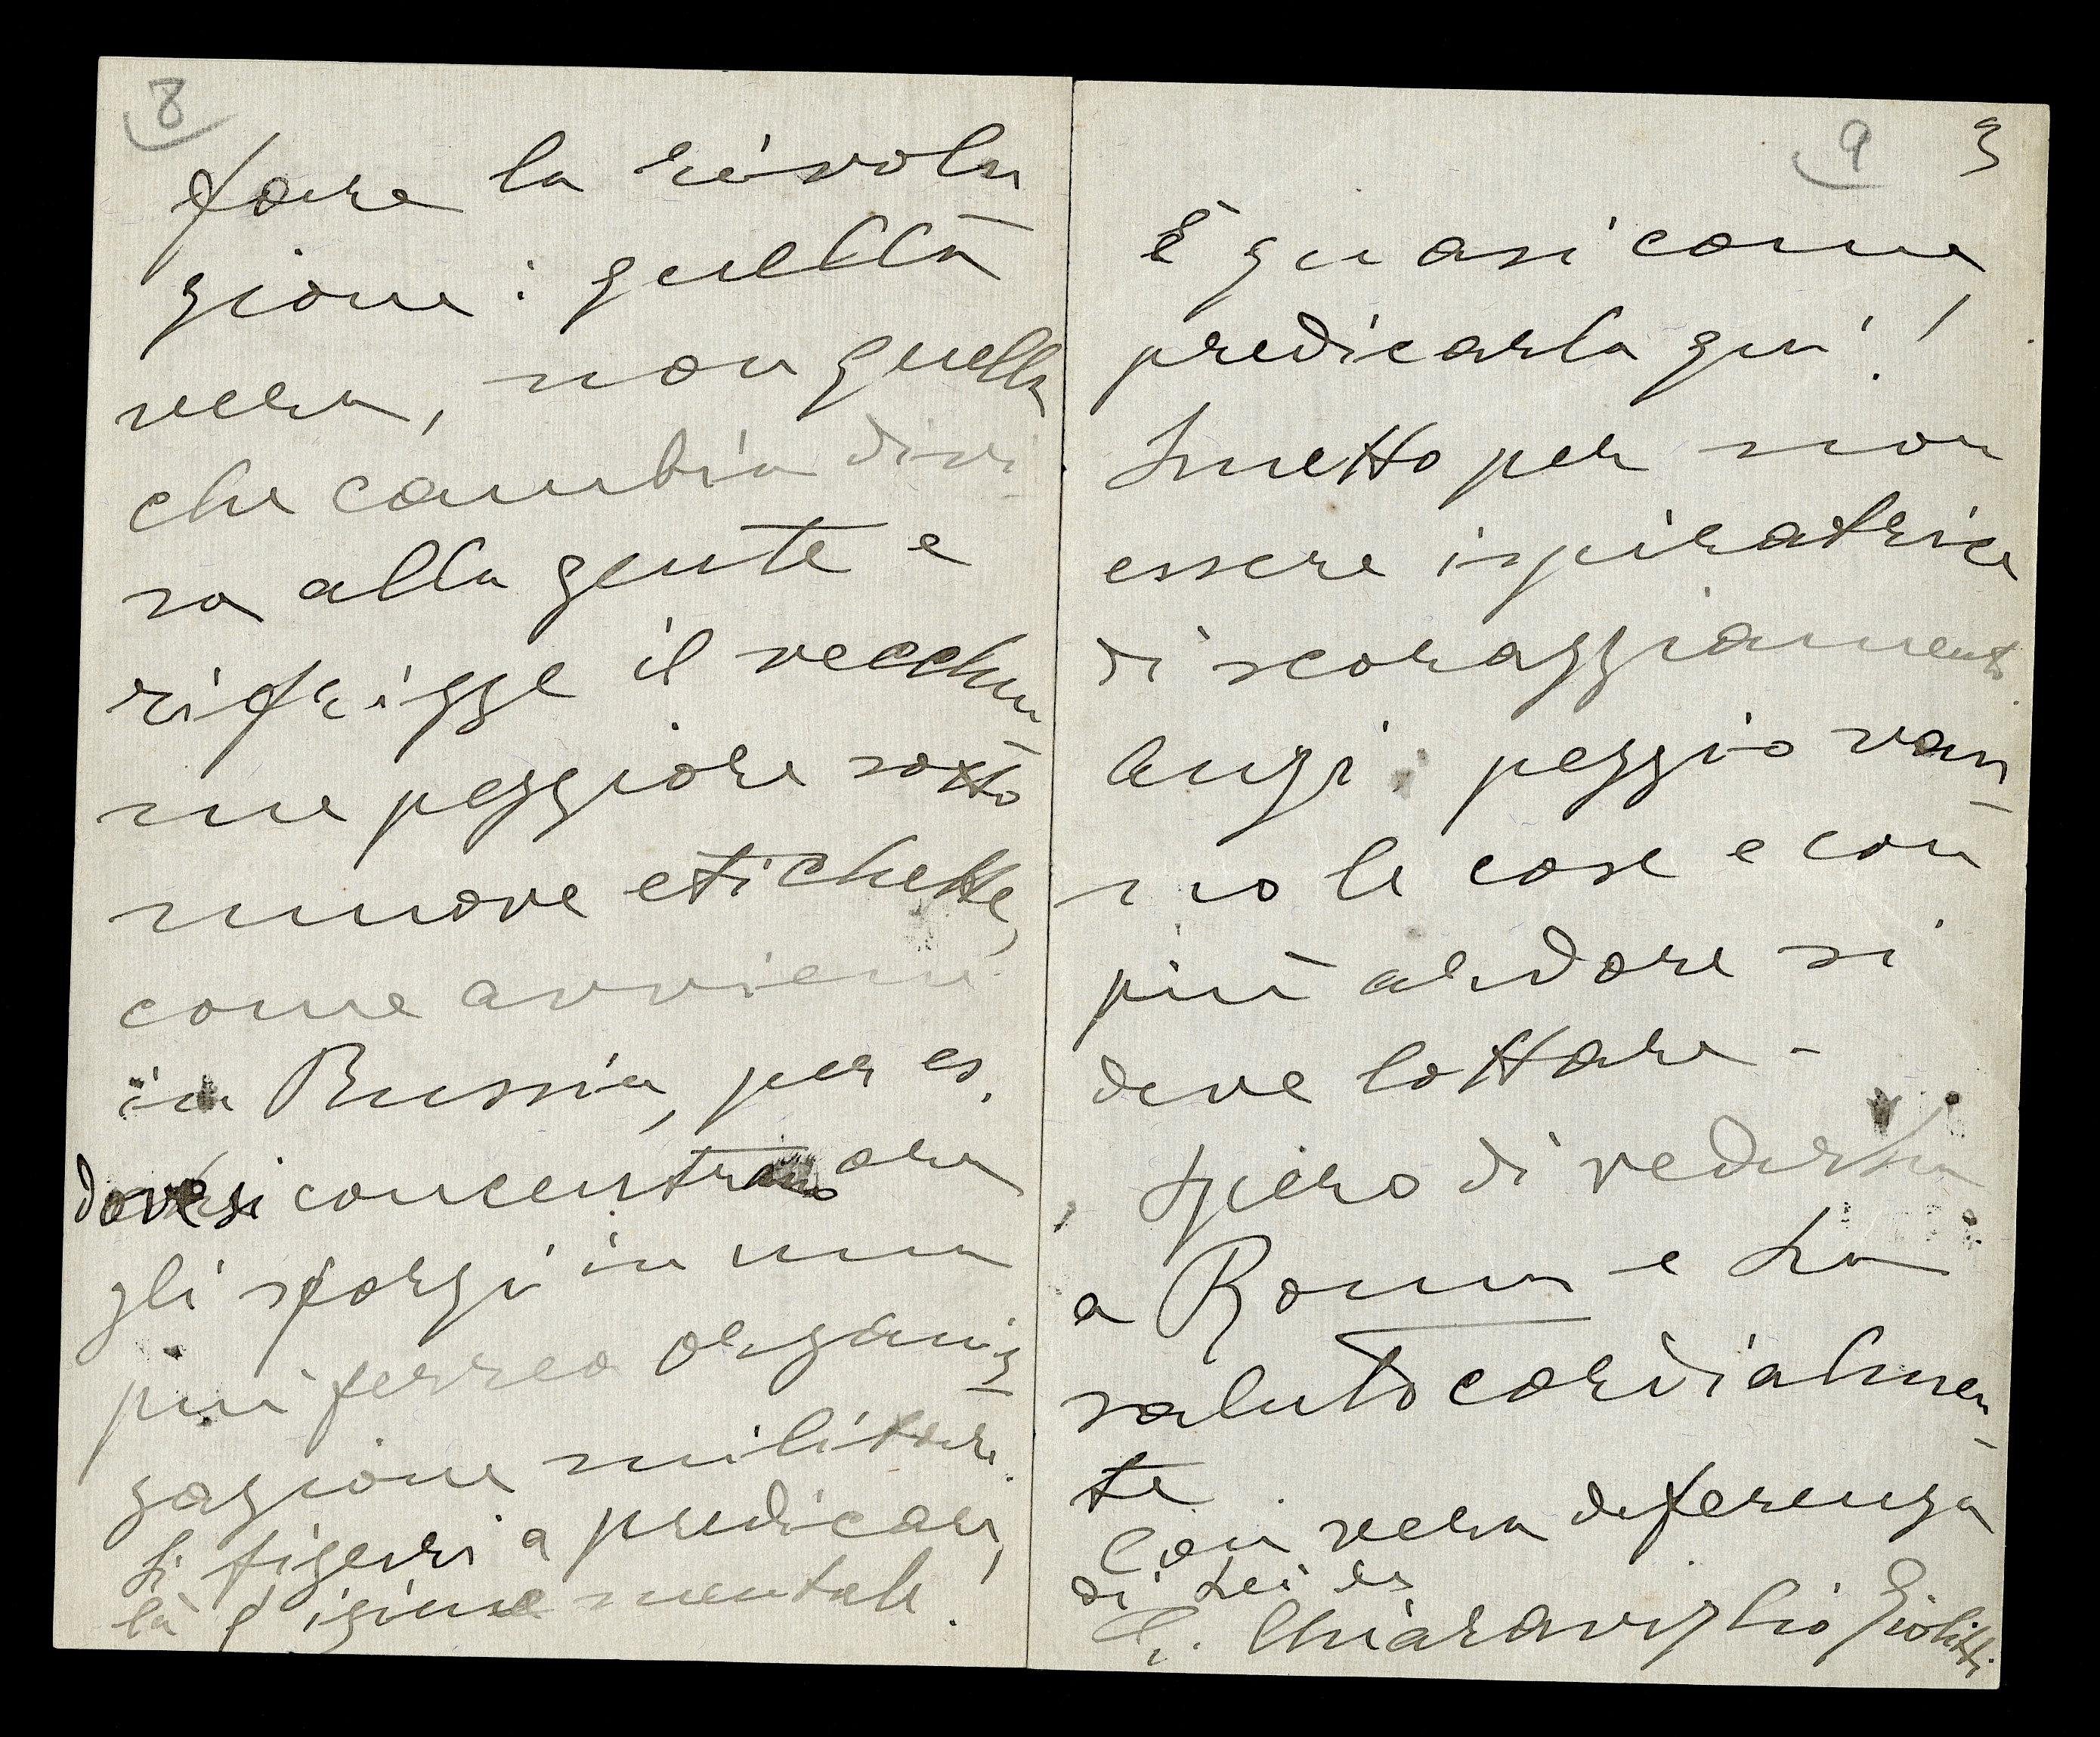 8
fare la rivolu
zione: quella
vera, non quella
che cambia divi
sa alla gente e
rifrigge il vecchiu
me peggiore sotto
nuove etichette,
come avviene
in Russia, per es.
dove si concentrano ora
gli sforzi in una
più ferrea organiz
zazione militare.
Si figuri a predicar
là l'igiene mentale!
9 3
È quasi come
predicarla qui!
Smetto per non
essere ispiratrice
di scoraggiamento
anzi: peggio van
no le cose e con
più ardore si
deve lottare -
Spero di vederla
a Roma e La
saluto cordialmen
te
Con vera deferenza
di Lei
E. Chiaraviglio Giolitti